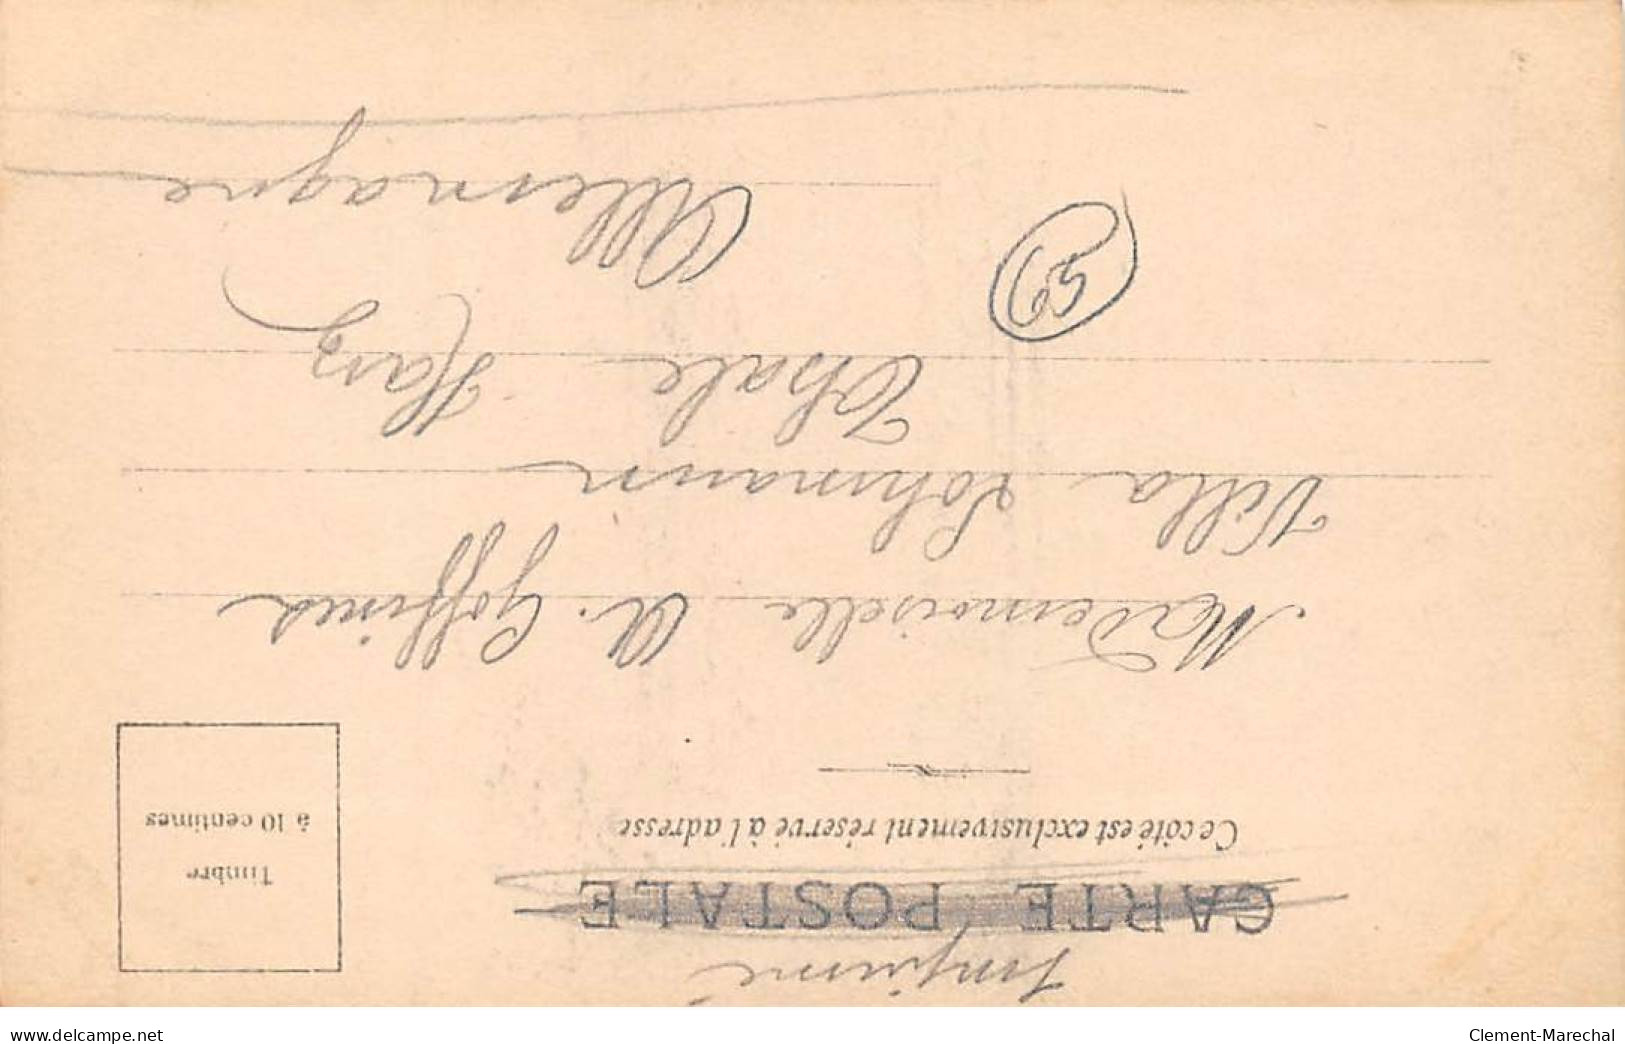 Imprimé
CARTE POSTALE
Ce côté est exclusivement réservé à l'adresse
Timbre
à 10 centimes
Mademoiselle A. Goffinet
Villa Lohmann
Thale Harz
Allemagne
65
www.delcampe.net
Clement-Marechal